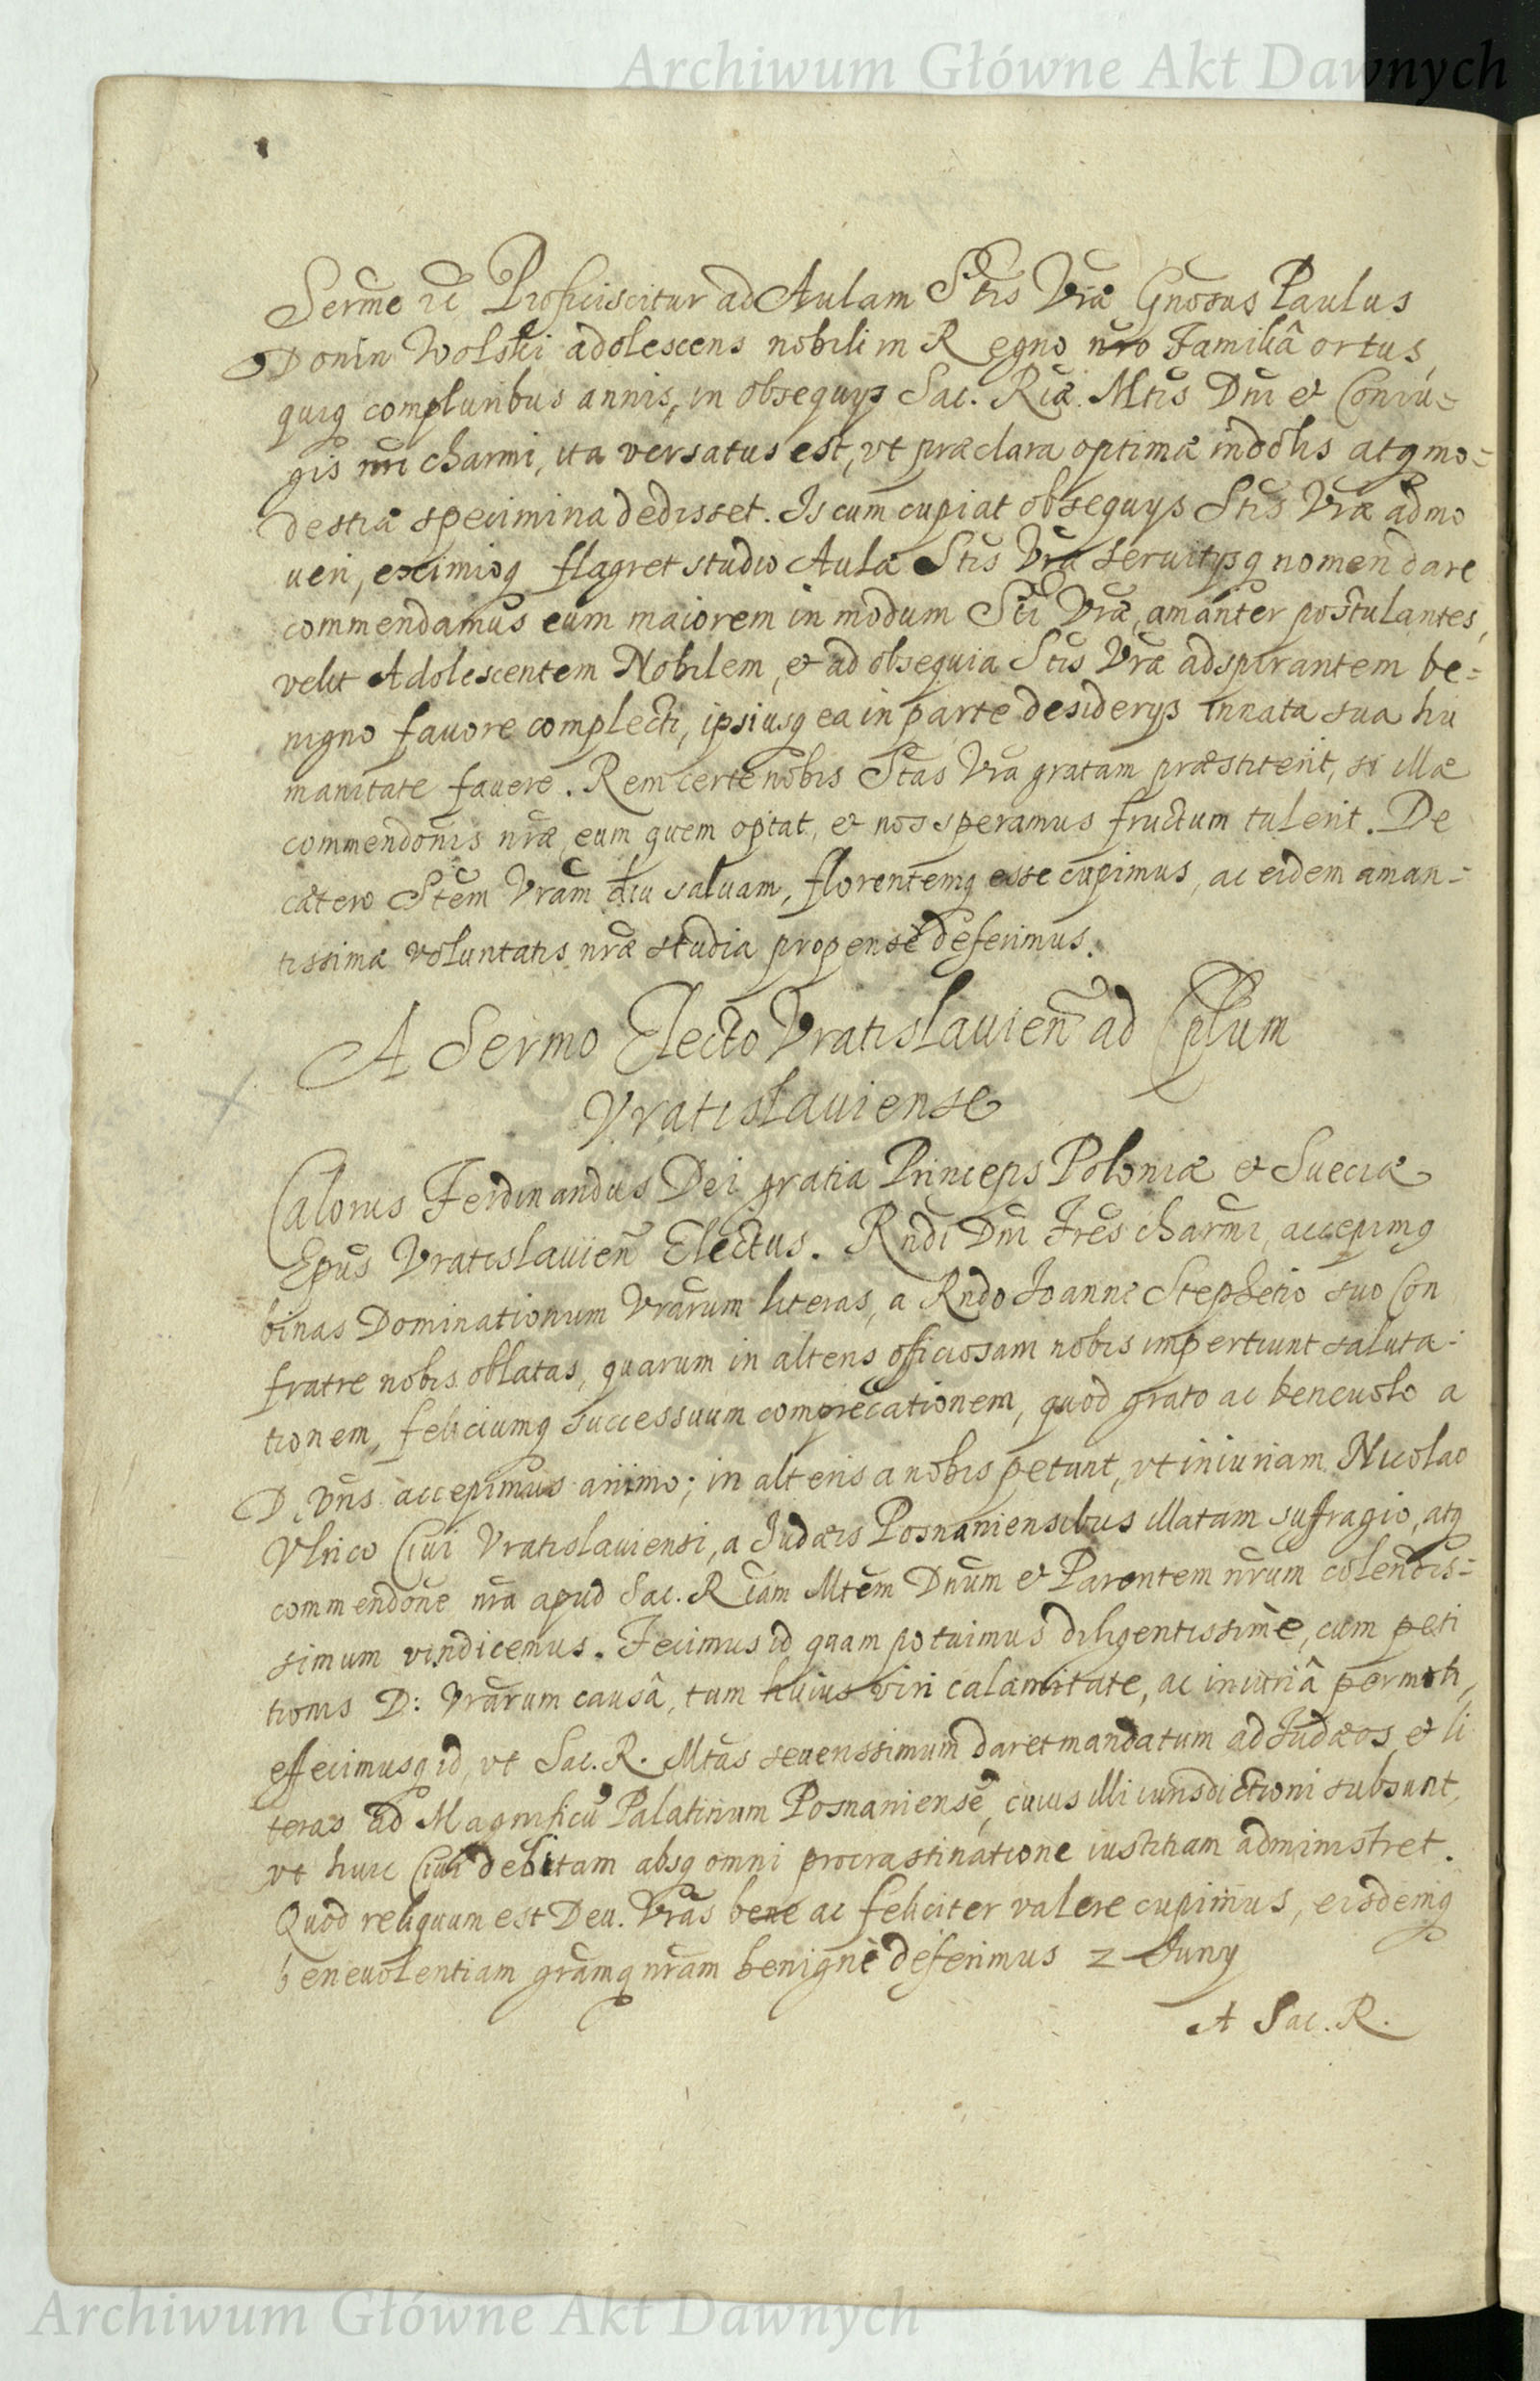 Archiwum Główne Akt Dawnych
Serme etc Proficiscitur ad Aulam Stis Vrae Gnosus Paulus
Donin Wolski adolescens nobili in Regno nro Familiâ ortus,
quiq compluribus annis, in obsequys Sac. Riae Mtis Dni et Coniu=
gis nri charmi, ita versatus est, vt praeclara optimae indolis atq mo=
destiae specimina dedisset. Is cum cupiat obsequys Stis Vrae admo
ueri, eximioq flagret studio Aulae Stis Vrae seruitysq nomen dare
commendamus eum maiorem in modum Sti Vrae, amanter postulantes,
velit Adolescentem Nobilem, et ad obsequia Stis Vrae adspirantem be=
nigno fauore complecti, ipsiusq ea in parte desiderys innata sua hu
manitate fauere. Rem certe nobis Stas Vra gratam praestiterit, si illae
commendonis nrae, eum quem optat, et nos speramus fructum tulerit. De
caetero Stem Vram diu saluam, florentemq esse cupimus, ac eidem aman=
tissimae voluntatis nrae studia propensè deferimus.
A Sermo Electo Vratislauien ad Cplum
Vratislauiense
Calorus Ferdinandus Dei gratia Princeps Poloniae et Sueciae
Epus Vratislauien Electus. Rndi Dni Fres charmi, accepimq
binas Dominationum Vrarum literas, a Rndo Joanne Stephetio suo Con
fratre nobis oblatas, quarum in alteris officiosam nobis impertiunt saluta=
tionem, feliciumq successuum comprecationem, quod grato ac beneuolo a
D. Vris accepimus animo; in alteris a nobis petunt, vt iniuriam Nicolao
Vlrico Ciui Vratislauiensi, a Judaeis Posnaniensibus illatam suffragio, atq
commendone nra apud Sac. Riam Mtem Dnum et Parentem nrum colendis=
simum vindicemus. Fecimus id quam potuimus diligentissimè, cum peti
tionis D: Vrarum causâ, tum huius viri calamitate, ac iniuriâ permoti,
effecimusq id, vt Sac. R. Mtas seuerissimum daret mandatum ad Judaeos, et li
teras ad Magnificu Palatinum Posnaniense, cuius illi iurisdictioni subsunt,
vt huic Ciui debitam absq omni procrastinatione iustitiam administret.
Quod reliquum est Deu. Vras bene ac feliciter valere cupimus, eisdemq
beneuolentiam gramq nram benignè deferimus 2 Juny
A Sac. R.
Archiwum Główne Akt Dawnych